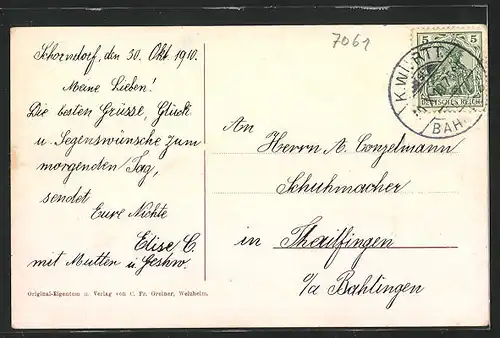 Schorndorf, den 30. Okt. 1910.
Meine Lieben!
Die besten Grüsse, Glück
u. Segenswünsche zum
morgenden Tag,
sendet
Eure Nichte
Elise C.
mit Mutter u. Geshw.
Original-Eigentum u. Verlag von C. Fr. Greiner, Welzheim.
7061
5 5
DEUTSCHES REICH
K. WÜRTT.
BAH
An
Herrn A. Conzelmann
Schuhmacher
in Thailfingen
o/a Bahlingen